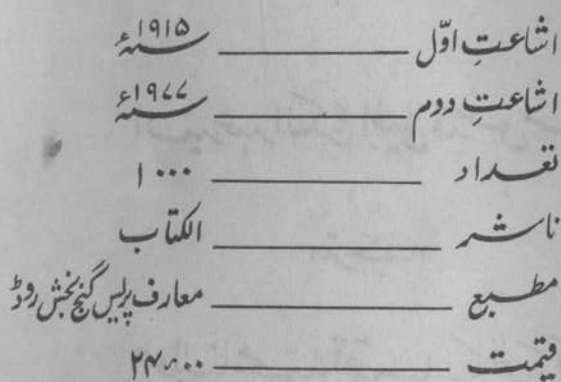 اشاعتِ اوّل ــــــــ ۱۹۱۵ء
اشاعتِ دوم ــــــــ ۱۹۷۷ء
تعداد ــــــــ ۱۰۰۰
ناشر ــــــــ الکتاب
مطبع ــــــــ معارف پریس گنج بخش روڈ
قیمت ــــــــ ۲۴٫۰۰